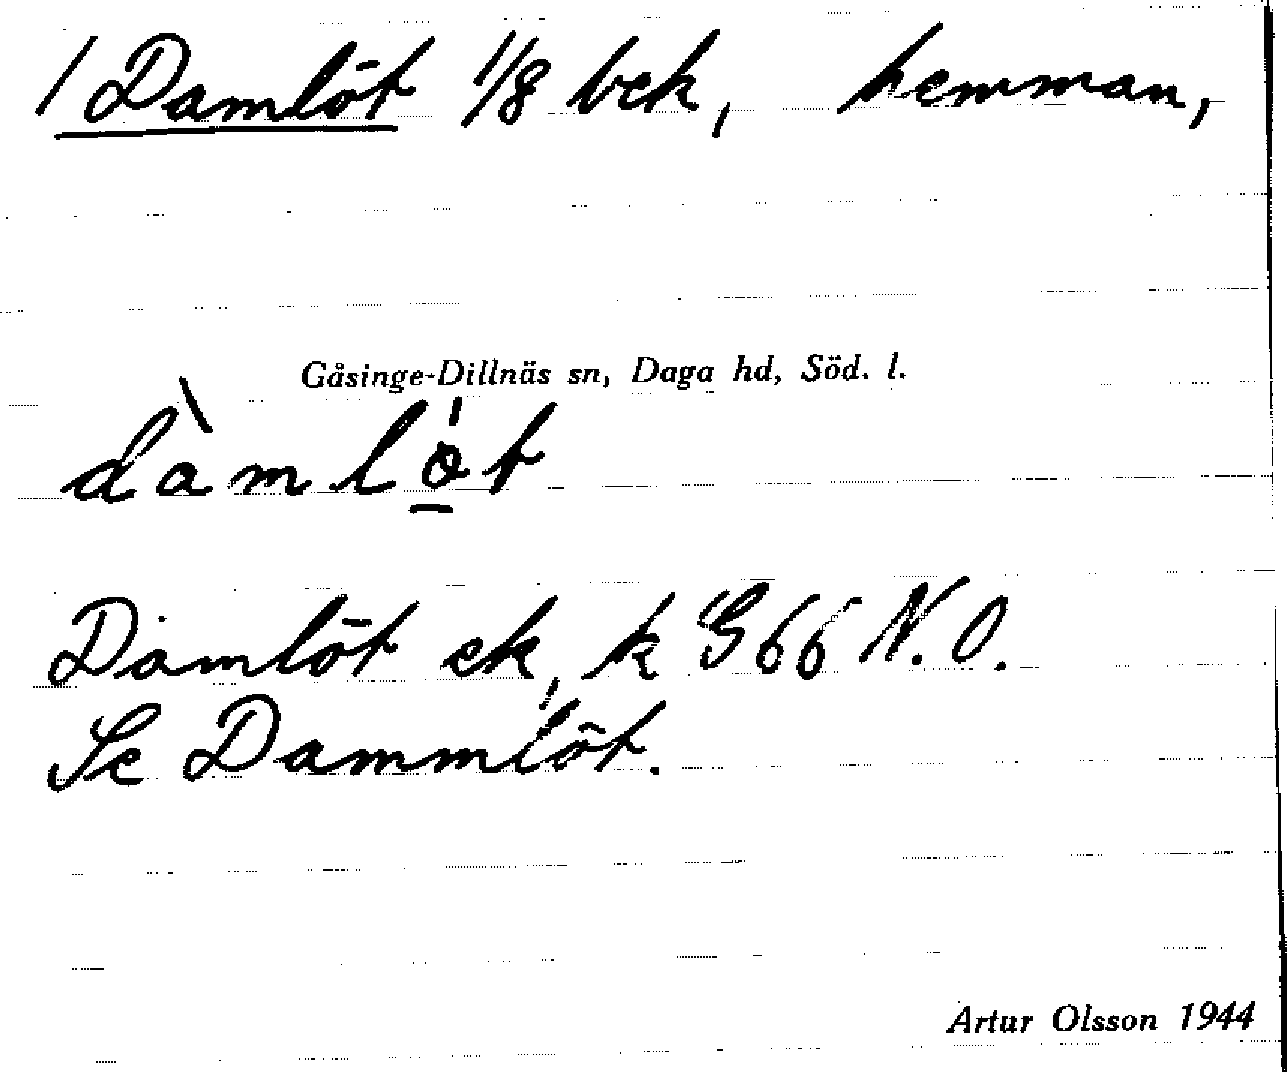 / Damlöt 1/8 bek, hemman,
Gåsinge-Dillnäs sn, Daga hd, Söd. l.
dàmlöt
Damlöt ek, k G66 N.O.
Se Dammlöt.
Artur Olsson 1944